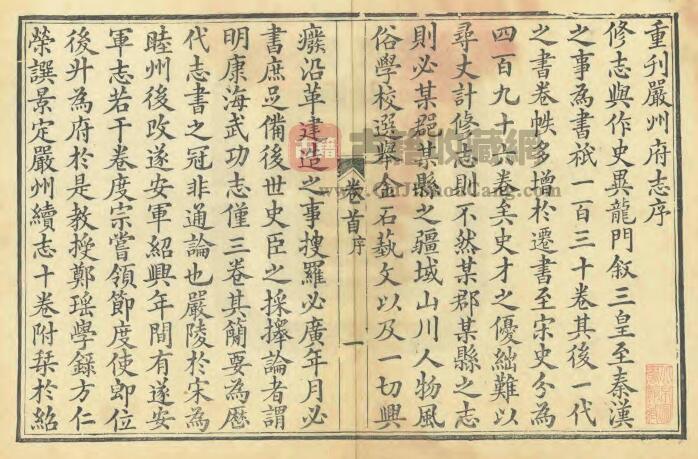 重刊嚴州府志序
修志與作史異龍門叙三皇至秦漢
之事為書祇一百三十卷其後一代
之書卷帙多增於遷書至宋史分為
四百九十六卷矣史才之優絀難以
尋丈計修志則不然某郡某縣之志
則必某郡某縣之疆域山川人物風
俗學校選舉金石藝文以及一切興
卷首 序
一
癈沿革建造之事搜羅必廣年月必
書庶足備後世史臣之採擇論者謂
明康海武功志僅三卷其簡要為歷
代志書之冠非通論也嚴陵於宋為
睦州後改遂安軍紹興年間有遂安
軍志若干卷度宗嘗領節度使卽位
後升為府於是教授鄭瑶學錄方仁
榮譔景定嚴州續志十卷附栞於紹
古籍收藏網